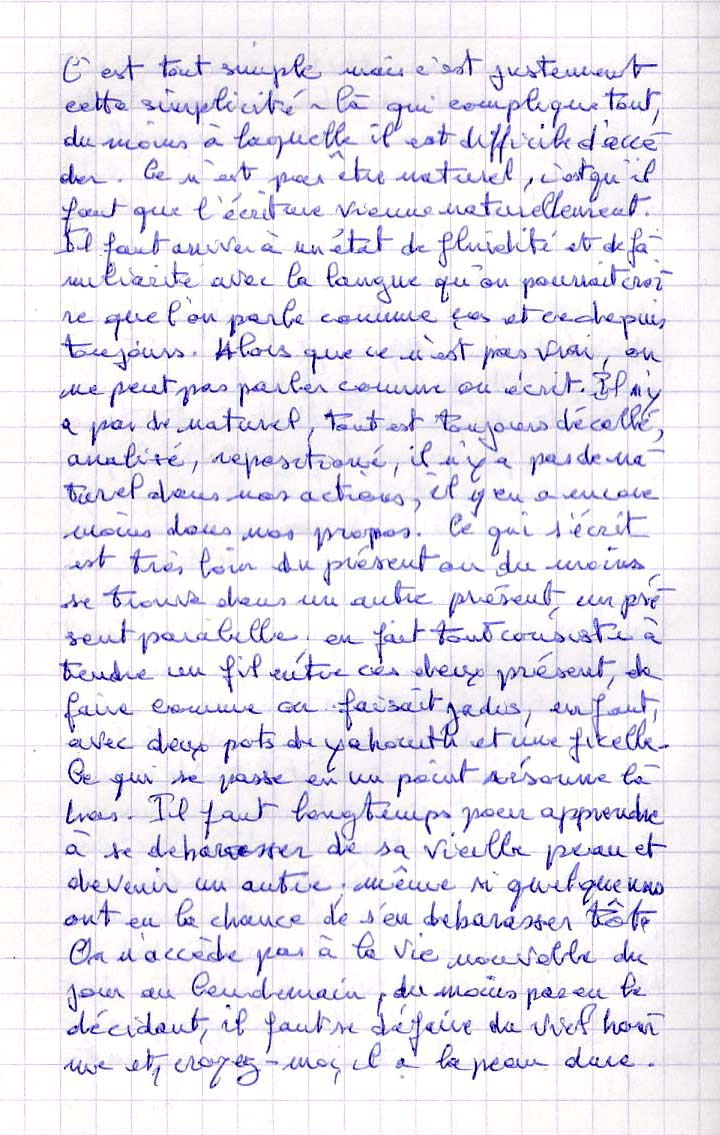 C'est tout simple mais c'est justement
cette simplicité-là qui complique tout,
du moins à laquelle il est difficile d'accé
der. Ce n'est pas être naturel, c'est qu'il
faut que l'écriture vienne naturellement.
Il faut arriver à un état de fluidité et de fa
miliarité avec la langue qu'on pourrait croi
re que l'on parle comme ça et ce depuis
toujours. Alors que ce n'est pas vrai, on
ne peut pas parler comme on écrit. Il n'y
a pas de naturel, tout est toujours décollé,
analisé, repositioné, il n'y a pas de na-
turel dans nos actions, il y en a encore
moins dans nos propos. Ce qui s'écrit
est très loin du présent ou du moins
se trouve dans un autre présent, un pré
sent parallelle, en fait tout consiste à
tendre un fil entre ces deux présent, de
faire comme on faisait jadis, enfant,
avec deux pots de yahourth et une ficelle.
Ce qui se passe en un point résonne là
bas. Il faut longtemps pour apprendre
à se debarasser de sa vieille peau et
devenir un autre, même si quelques uns
ont eu la chance de s'en debarasser tôt.
On n'accède pas à la vie nouvelle du
jour au lendemain, du moins pas en le
décidant, il faut se défaire du vieil hom
me et, croyez-moi, il a la peau dure.